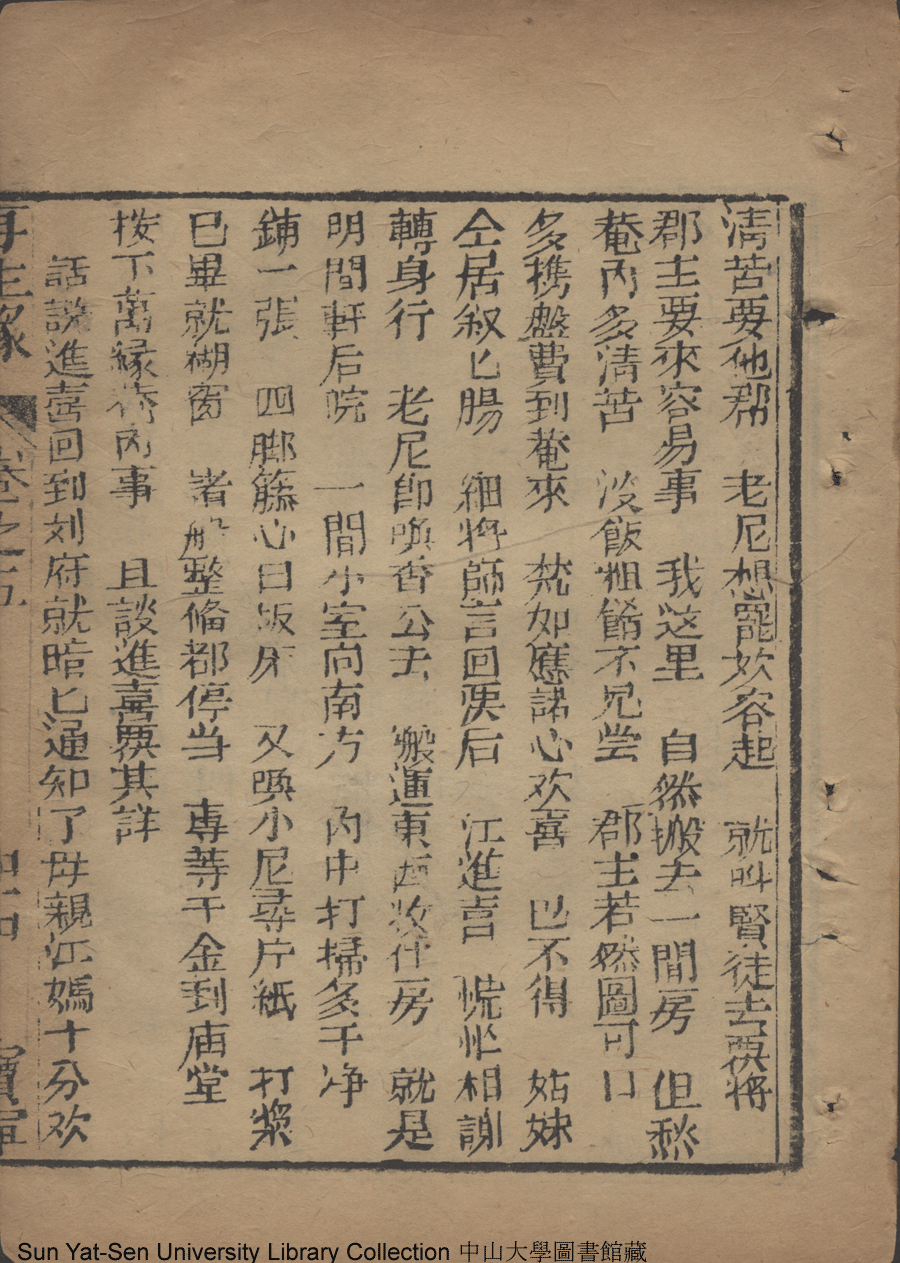 清苦要他帮　老尼想罷欢容起　就叫賢徒去禀將
郡主要來容易事　我这里　自然搬去一間房　但愁
菴內多清苦　淡飯粗餚不见尝　郡主若然圖可口
多携盤費到菴來　梵如應諾心欢喜　巴不得　姑妹
仝居叙匕腸　細將師言回禀后　江進喜　慌忙相謝
轉身行　老尼卽喚香公去　搬運東西收什房　就是
明間軒后院　一間小室向南方　內中打掃多干净
鋪一張　四脚籐心白板床　又喚小尼尋片紙　打漿
已畢就糊窗　諸般整偹都停当　專等千金到庙堂
按下萬緣菴內事　且談進喜禀其詳
話說進喜回到刘府就暗匕通知了母親江媽十分欢
再生緣　卷之五　寶軍
Sun Yat-Sen University Library Collection 中山大學圖書館藏